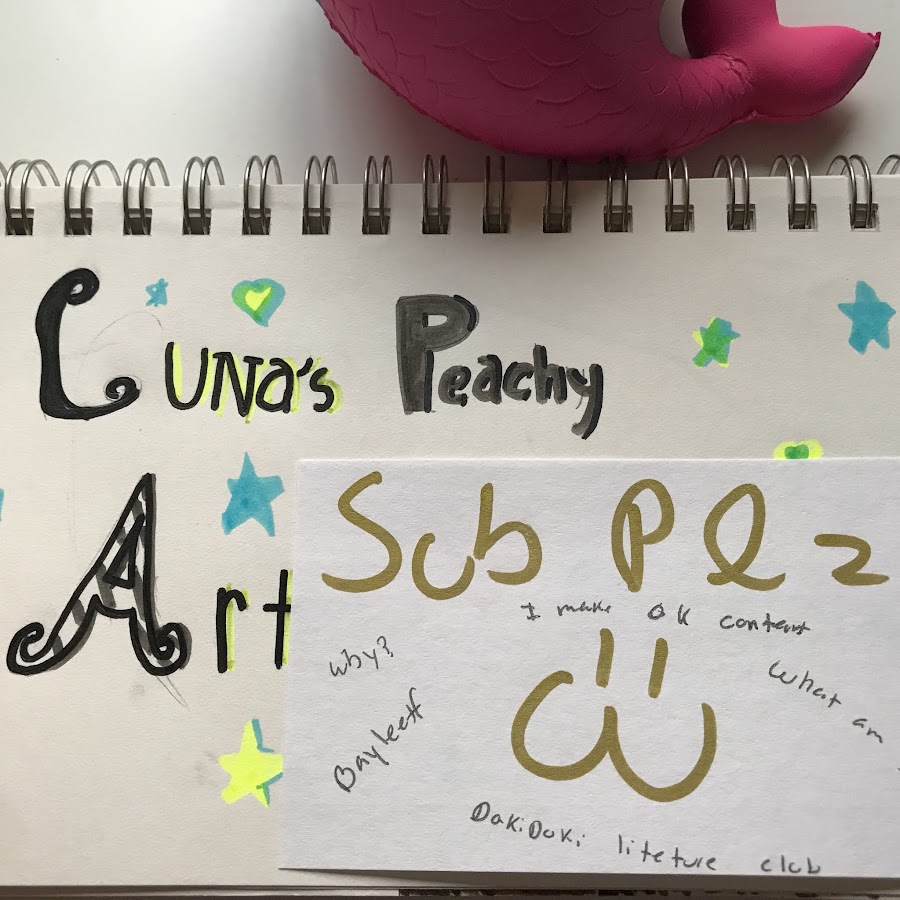 Luna's Peachy
Art
Sub Plz
I make ok content
why?
What am
Bayleef
DokiDoki liteture club